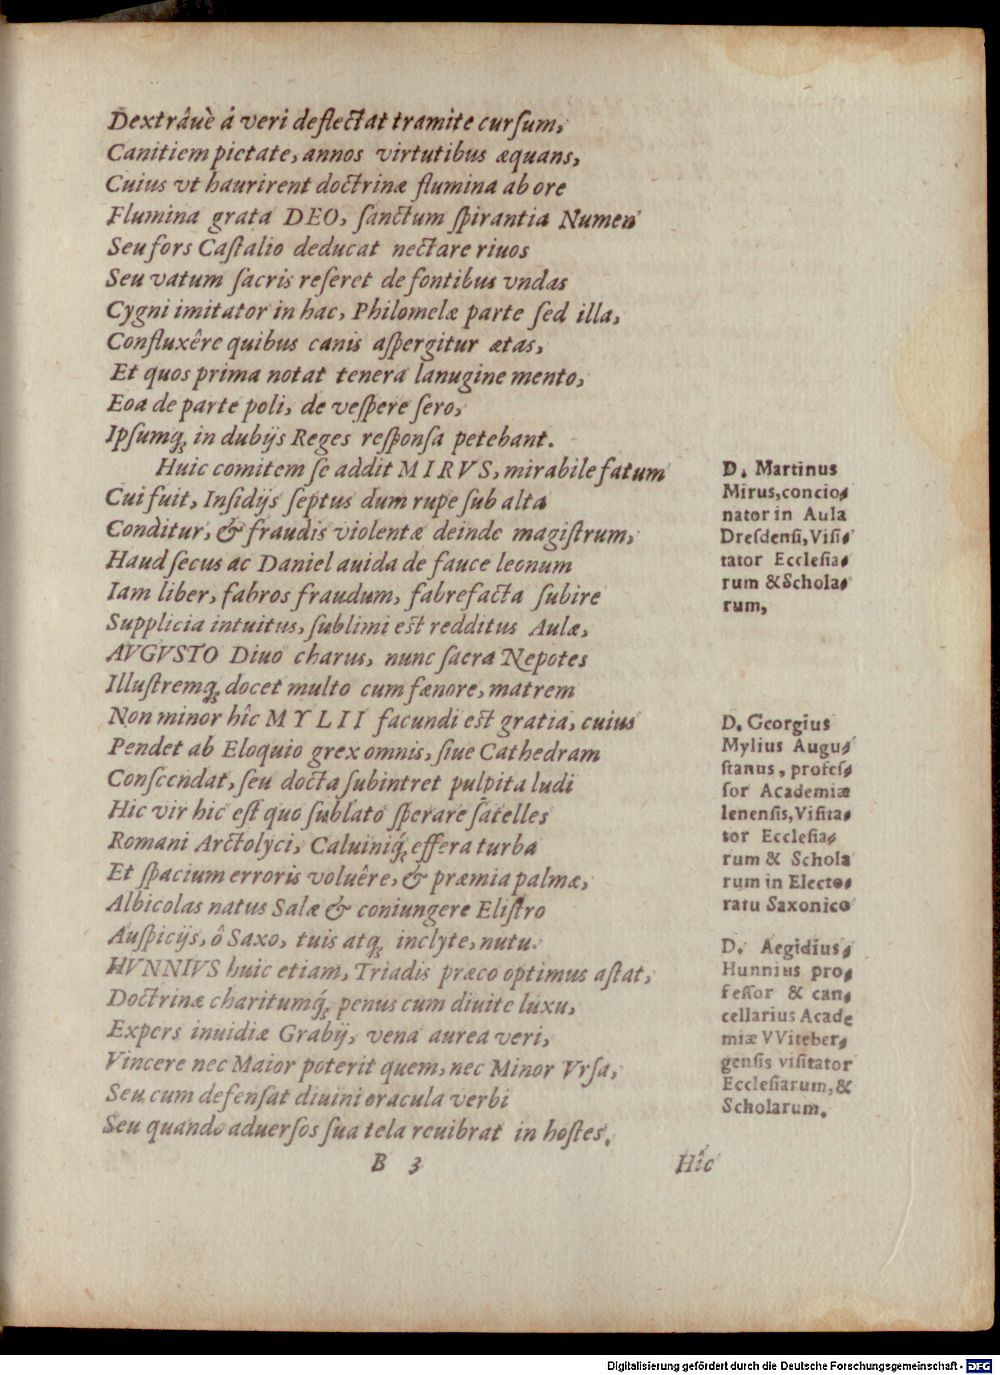 Dextrâuè á veri deflectat tramite cursum,
Canitiem pietate, annos virtutibus æquans,
Cuius vt haurirent doctrinæ flumina ab ore
Flumina grata DEO, sanctum spirantia Numen
Seu fors Castalio deducat nectare riuos
Seu vatum sacris reseret de fontibus vndas
Cygni imitator in hac, Philomelæ parte sed illa,
Confluxêre quibus canis aspergitur ætas,
Et quos prima notat tenera lanugine mento,
Eoa de parte poli, de vespere sero,
Ipsumq; in dubijs Reges responsa petebant.
Huic comitem se addit MIRVS, mirabile fatum
Cui fuit, Insidijs septus dum rupe sub alta
Conditur, & fraudis violentæ deinde magistrum,
Haud secus ac Daniel auida de fauce leonum
Iam liber, fabros fraudum, fabrefacta subire
Supplicia intuitus, sublimi est redditus Aulæ,
AVGVSTO Diuo charus, nunc sacra Nepotes
Illustremq; docet multo cum fœnore, matrem
Non minor hîc MYLII facundi est gratia, cuius
Pendet ab Eloquio grex omnis, siue Cathedram
Conscendat, seu docta subintret pulpita ludi
Hic vir hic est quo sublato sperare satelles
Romani Arctolyci, Caluiniq́; effera turba
Et spacium erroris voluêre, & præmia palmæ,
Albicolas natus Salæ & coniungere Elistro
Auspicijs, ô Saxo, tuis atq; inclyte, nutu.
HVNNIVS huic etiam, Triadis præco optimus astat,
Doctrinæ charitumq́; penus cum diuite luxu,
Expers inuidiæ Grabij, vena aurea veri,
Vincere nec Maior poterit quem, nec Minor Vrsa,
Seu cum defensat diuini oracula verbi
Seu quando aduersos sua tela reuibrat in hostes.
D. Martinus
Mirus, concio-
nator in Aula
Dresdensi, Visi-
tator Ecclesia-
rum & Schola-
rum,
D. Georgius
Mylius Augu-
stanus, profes-
sor Academiæ
Ienensis, Visita-
tor Ecclesia-
rum & Schola
rum in Electo-
ratu Saxonico
D. Aegidius,
Hunnius pro-
fessor & can-
cellarius Acade
miæ VViteber-
gensis visitator
Ecclesiarum, &
Scholarum.
B 3
Hîc
Digitalisierung gefördert durch die Deutsche Forschungsgemeinschaft - DFG